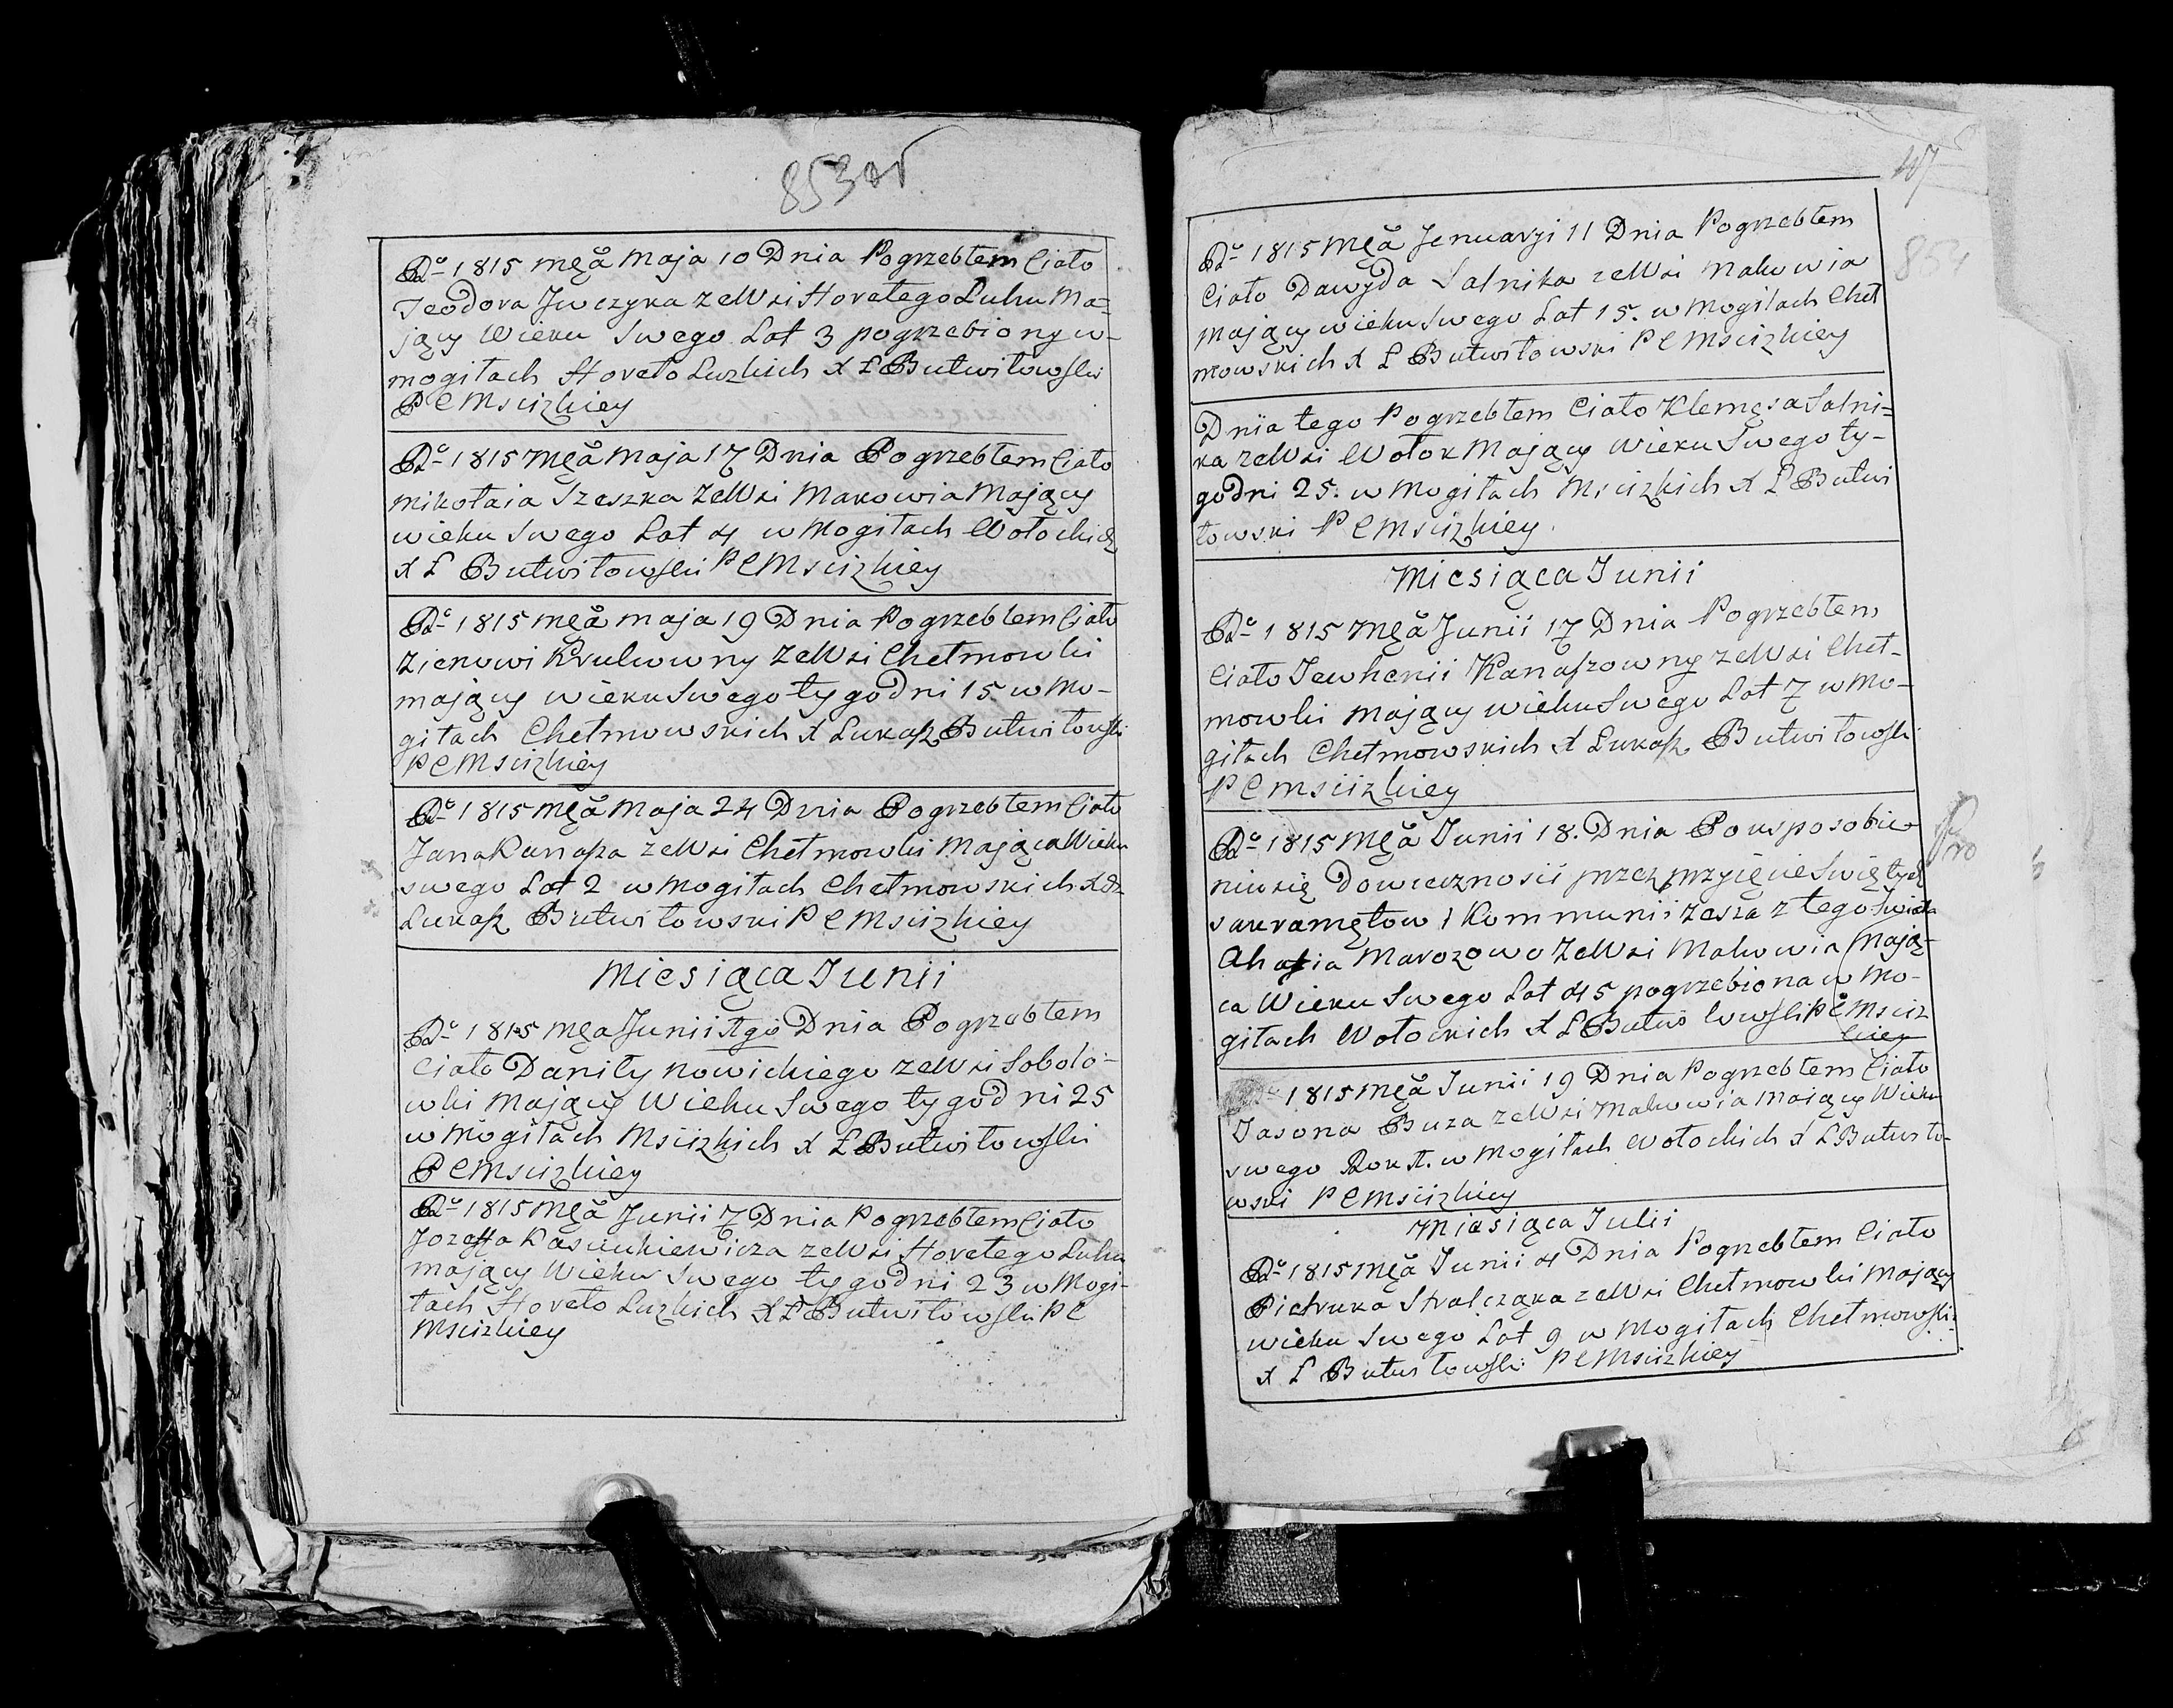 853 об
Rº 1815 Męã Maja 10 Dnia Pogrzebłem Ciało
Teodora Jwczyka ze Wsi Horełego Łuhu Ma=
jący Wieku Swego Lat 3 pogrzebiony w
mogiłach Horeło Łuzkich X Ł Butwiłowski
P C Mscizkiey
Rº 1815 Męã Maja 17 Dnia Pogrzebłem Ciało
Mikołaia Szeszka ze Wsi Makowia Mający
wieku Swego Lat 4 w Mogiłach Wołockich
X Ł Butwiłowski P C Mscizkiey
Rº 1815 Męã Maja 19 Dnia Pogrzebłem Ciało
Zienowi Krukowny ze Wsi Chełmowki
mający wieku Swego tygodni 15. w Mo-
giłach Chełmowskich X Łukasz Butwiłowski
P C Mscizkiey
Rº 1815 Męã Maja 24 Dnia Pogrzebłem Ciało
Jana Kanasza ze Wsi Chełmowki Mająca Wieku
swego Lat 2 w Mogiłach Chełmowskich X
Łukasz Butwiłowski P C Mscizkiey
Miesiąca Junii
Rº 1815 Męa Junii 1go Dnia Pogrzebłem
Ciało Daniły Nowickiego ze Wsi Sobolo-
wki Mający Wieku Swego tygodni 25
w Mogiłach Mscizkich X Ł Butwiłowski
P C Mscizkiey
Rº 1815 Męã Junii 7 Dnia Pogrzebłem Ciało
Jozeffa Kasciukiewicza ze Wsi Horełego Łuhu
mający Wieku Swego tygodni 23 w Mogi-
łach Horeło Łuzkich X Ł Butwiłowski P C
Mscizkiey
854
Rº 1815 Męã Jenuaryi 11 Dnia Pogrzebłem
Ciało Dawyda Salnika ze Wsi Makowia
Mający wieku Swego Lat 15. w Mogiłach Cheł
mowskich X Ł Butwiłowski P C Mscizkiey
Dnia tego Pogrzebłem Ciało Klemęsa Salni=
ka ze Wsi Wołok Mający Wieku Swego ty-
godni 25. w Mogiłach Mscizkich X Ł Butwi
łowski P C Mscizkiey
Miesiąca Junii
Rº 1815 Męã Junii 17 Dnia Pogrzebłem
Ciało Jewhenii Kanaszowny ze Wsi Cheł-
mowki Mający wieku Swego Lat 7 w Mo-
giłach Chełmowskich X Łukasz Butwiłowski
P C Mscizkiey
Rº 1815 Męã Junii 18. Dnia Po usposobie
niu się Do wiecznosci przez przyięcie Swiętych
sakramętow i Kommunii Zesza z tego Swiata
Ahafia Marozowo ze Wsi Makowia Mają-
ca Wieku Swego Lat 45 pogrzebiona w Mo-
giłach Wołockich X Ł Butwiłowski P C Msciz
kiey
1815 Męã Junii 19 Dnia Pogrzebłem Ciało
Jasona Buza ze Wsi Makowia Maiący Wieku
swego Rok 1. w Mogiłach Wołockich X Ł Butwiło-
wski P C Mscizkiey
Miesiąca Julii
Rº 1815 Męã Junii 4 Dnia Pogrzebłem Ciało
Pietruka Stralcząka ze Wsi Chełmowki Mający
wieku Swego Lat 9 w Mogiłach Chełmowski:
X Ł Butwiłowski P C Mscizkiey